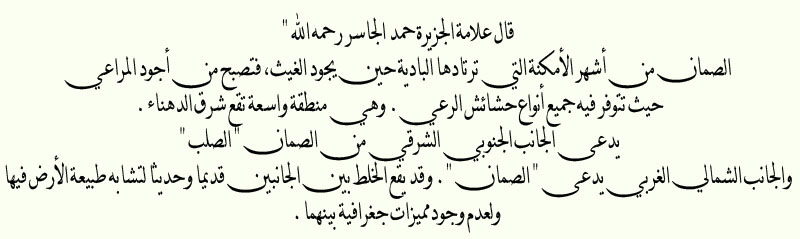 قال علامة الجزيرة حمد الجاسر رحمه الله "
الصمان من أشهر الأمكنة التي ترتادها البادية حين يجود الغيث، فتصبح من أجود المراعي
حيث تتوفر فيه جميع أنواع حشائش الرعي . وهي منطقة واسعة تقع شرق الدهناء .
يدعى الجانب الجنوبي الشرقي من الصمان " الصلب "
والجانب الشمالي الغربي يدعى " الصمان " . وقد يقع الخلط بين الجانبين قديما وحديثا لتشابه طبيعة الأرض فيها
ولعدم وجود مميزات جغرافية بينهما .